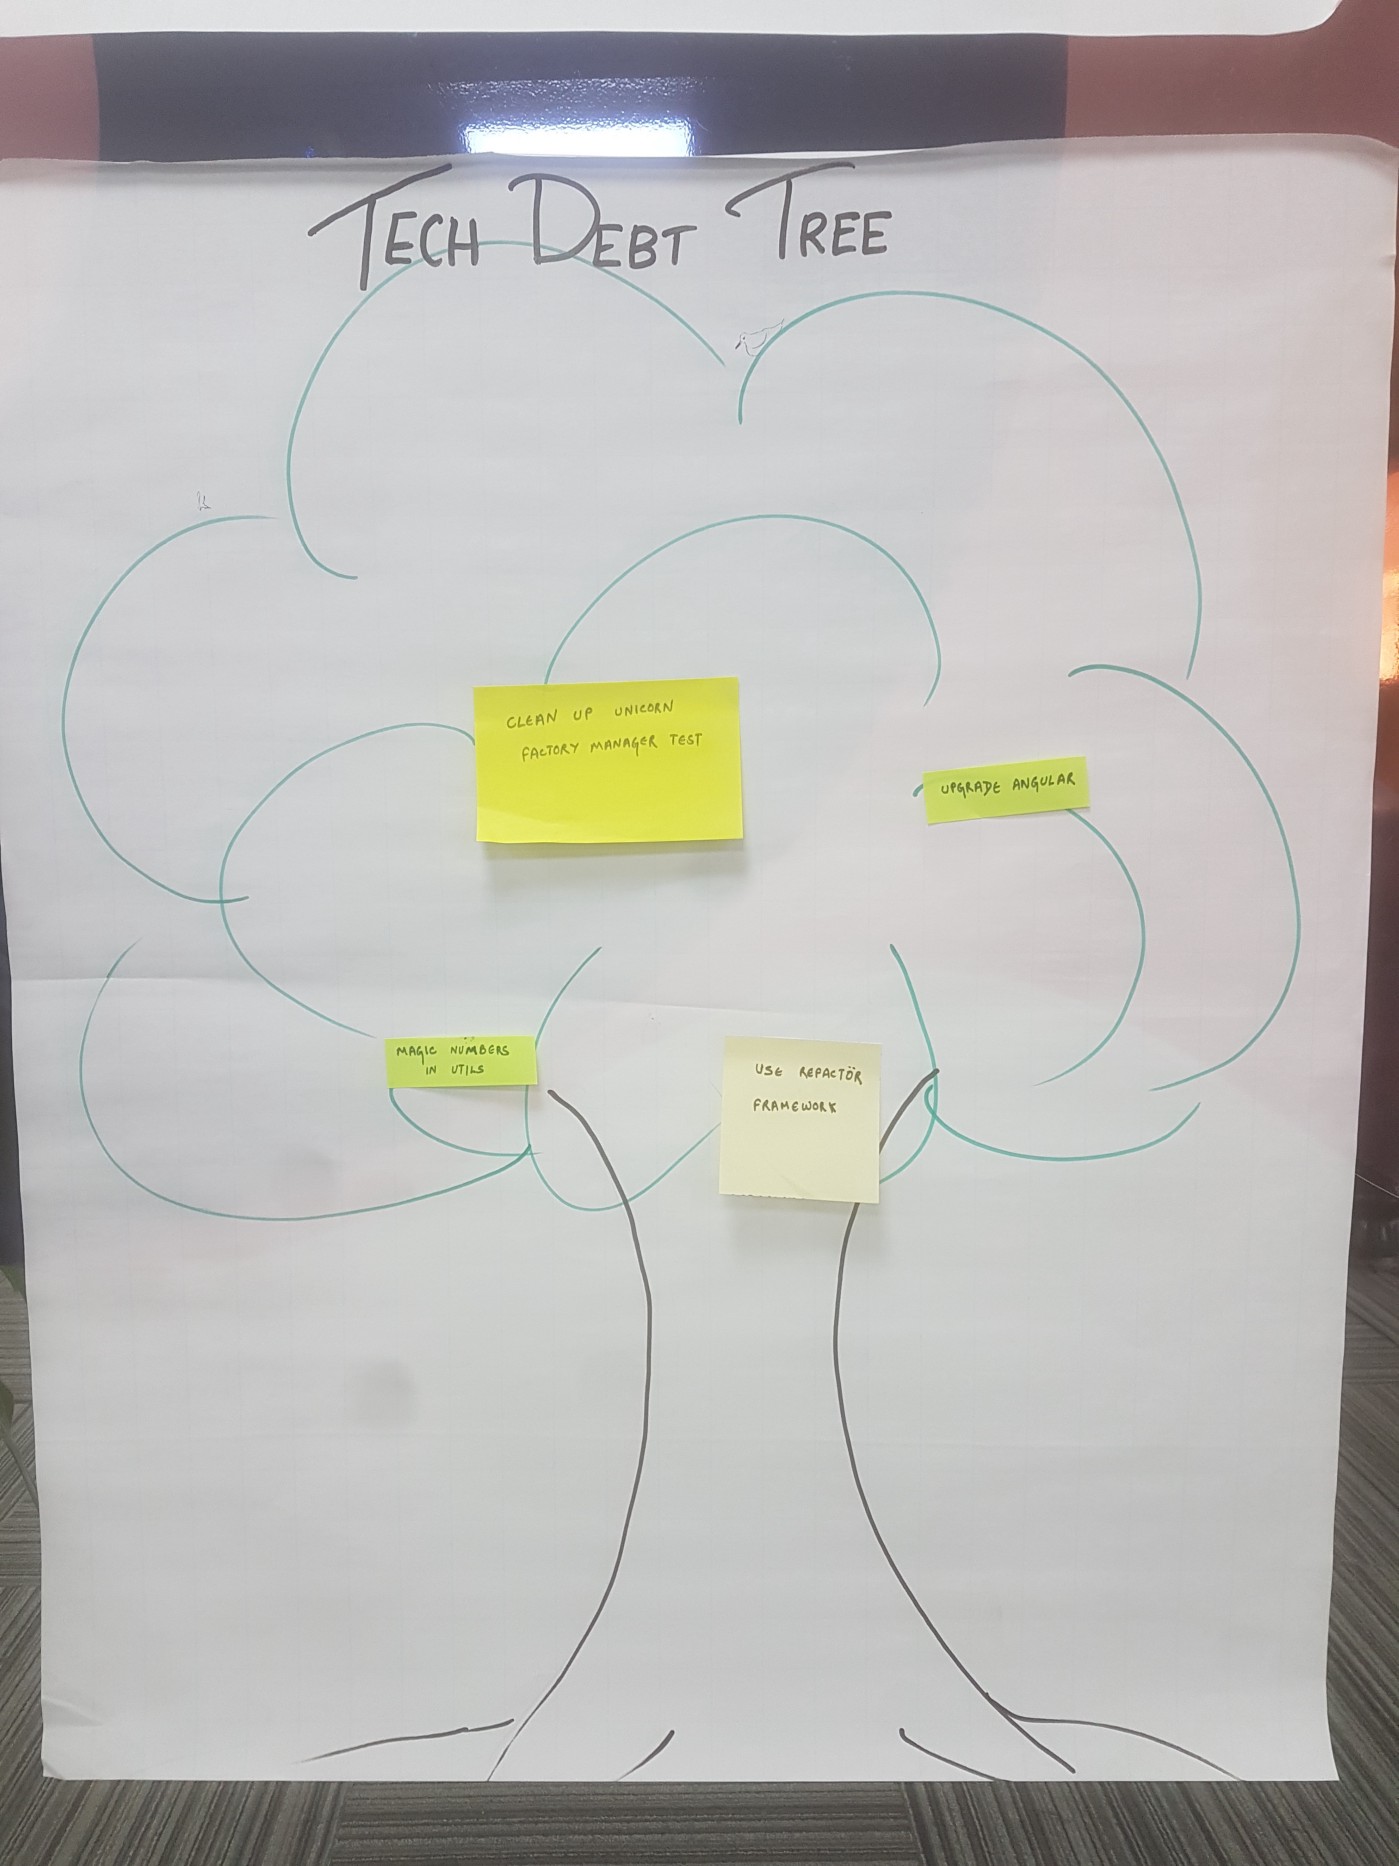 TECH DEBT TREE
CLEAN UP UNICORN
FACTORY MANAGER TEST
UPGRADE ANGULAR
MAGIC NUMBERS
IN UTILS
USE REFACTÖR
FRAMEWORK